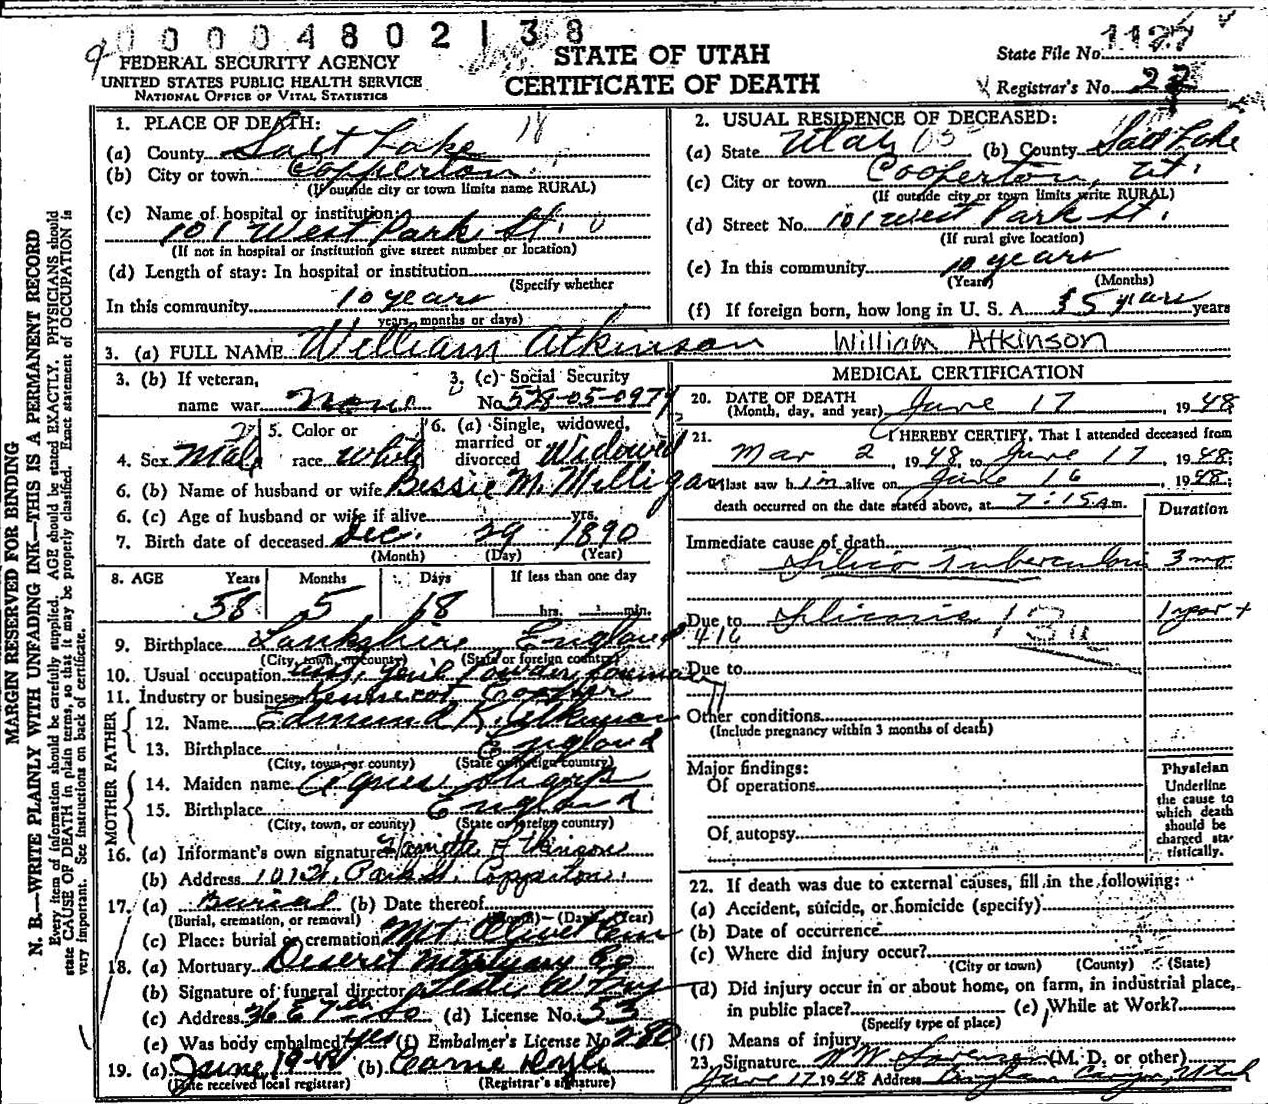 0 0 0 0 4 8 0 2 1 3 8
FEDERAL SECURITY AGENCY
UNITED STATES PUBLIC HEALTH SERVICE
NATIONAL OFFICE OF VITAL STATISTICS
STATE OF UTAH
CERTIFICATE OF DEATH
State File No.
Registrar's No.
MARGIN RESERVED FOR BINDING
N. B.—WRITE PLAINLY WITH UNFADING INK—THIS IS A PERMANENT RECORD
Every item of information should be carefully supplied. AGE should be stated EXACTLY. PHYSICIANS should
state CAUSE OF DEATH in plain terms, so that it may be properly classified. Exact statement of OCCUPATION is
very important. See instructions on back of certificate.
1. PLACE OF DEATH:
(a) County Salt Lake
(b) City or town Copperton
(If outside city or town limits name RURAL)
(c) Name of hospital or institution:
101 West Park St.
(If not in hospital or institution give street number or location)
(d) Length of stay: In hospital or institution
(Specify whether
In this community 10 years
years, months or days)
2. USUAL RESIDENCE OF DECEASED:
(a) State Utah (b) County Salt Lake
(c) City or town Copperton, Ut.
(If outside city or town limits write RURAL)
(d) Street No. 101 West Park St.
(If rural give location)
(e) In this community 10 years
(Years) (Months)
(f) If foreign born, how long in U. S. A. years years
3. (a) FULL NAME William Atkinson William Atkinson
3. (b) If veteran,
name war None
3. (c) Social Security
No. 528-05-0977
4. Sex Male
5. Color or
race White
6. (a) Single, widowed,
married or
divorced Widowed
6. (b) Name of husband or wife Bessie M. Milligan
6. (c) Age of husband or wife if alive yrs.
7. Birth date of deceased Dec. 29 1890
(Month) (Day) (Year)
8. AGE Years Months Days If less than one day
58 5 18 hrs. min.
9. Birthplace England
(City, town, or county) (State or foreign country)
10. Usual occupation Powder
11. Industry or business Kennecot Copper
FATHER
12. Name Edmund R. Atkinson
13. Birthplace England
(City, town, or county) (State or foreign country)
MOTHER
14. Maiden name Agnes Sharp
15. Birthplace England
(City, town, or county) (State or foreign country)
16. (a) Informant's own signature Atkinson
(b) Address 101 W. Park St. Copperton.
17. (a) Burial (b) Date thereof
(Burial, cremation, or removal) (Month)—(Day) (Year)
(c) Place: burial or cremation Mt. Olivet Cem
18. (a) Mortuary Deseret Mortuary Co
(b) Signature of funeral director
(c) Address 36 E 7th So (d) License No. 53
(e) Was body embalmed? Yes (f) Embalmer's License No. 280
19. (a) June 19-48 (b)
(Date received local registrar) (Registrar's signature)
MEDICAL CERTIFICATION
20. DATE OF DEATH
(Month, day, and year) June 17, 1948
21. I HEREBY CERTIFY, That I attended deceased from
Mar 2, 1948, to June 17, 1948;
I last saw him alive on June 16 1948;
death occurred on the date stated above, at 7:15 a.m.
Duration
Immediate cause of death
Silico Tuberculosis 3 mo
Due to Silicosis 1 year +
416
Due to
Other conditions
(Include pregnancy within 3 months of death)
Major findings:
Of operations
Of autopsy
Physician
Underline
the cause to
which death
should be
charged sta-
tistically.
22. If death was due to external causes, fill in the following:
(a) Accident, suicide, or homicide (specify)
(b) Date of occurrence
(c) Where did injury occur?
(City or town) (County) (State)
(d) Did injury occur in or about home, on farm, in industrial place,
in public place? (e) While at Work?
(Specify type of place)
(f) Means of injury
23. Signature (M. D. or other)
June 17 1948 Address Bingham Canyon, Utah